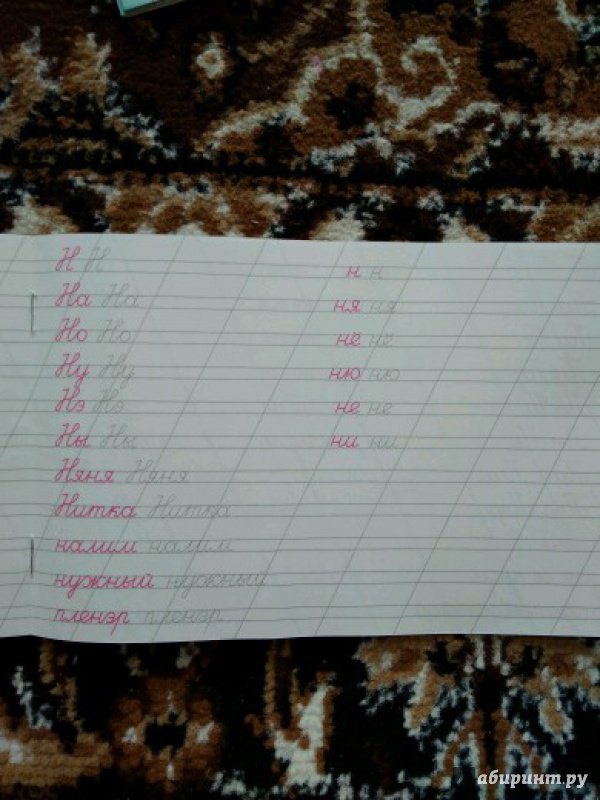 Н Н н н
На На ня ня
Но Но нё нё
Ну Ну ню ню
Нэ Нэ не не
Ны Ны ни ни
Няня Няня
Нитка Нитка
налим налим
нужный нужный
пленэр пленэр
абиринт.ру